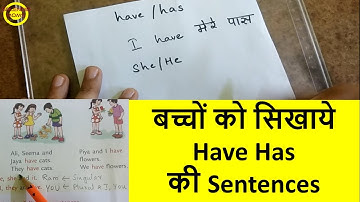 have / has
I have मेरे पास
she/He
Ali, Seema and
Jaya have cats.
They have cats.
Piya and I have
flowers.
We have flowers.
she and it. Ram ← Singular
they are You ← Plural & I, You
बच्चों को सिखाये
Have Has
की Sentences